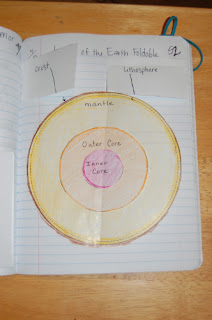 of the Earth Foldable
52
crust
Lithosphere
mantle
Outer Core
Inner
Core